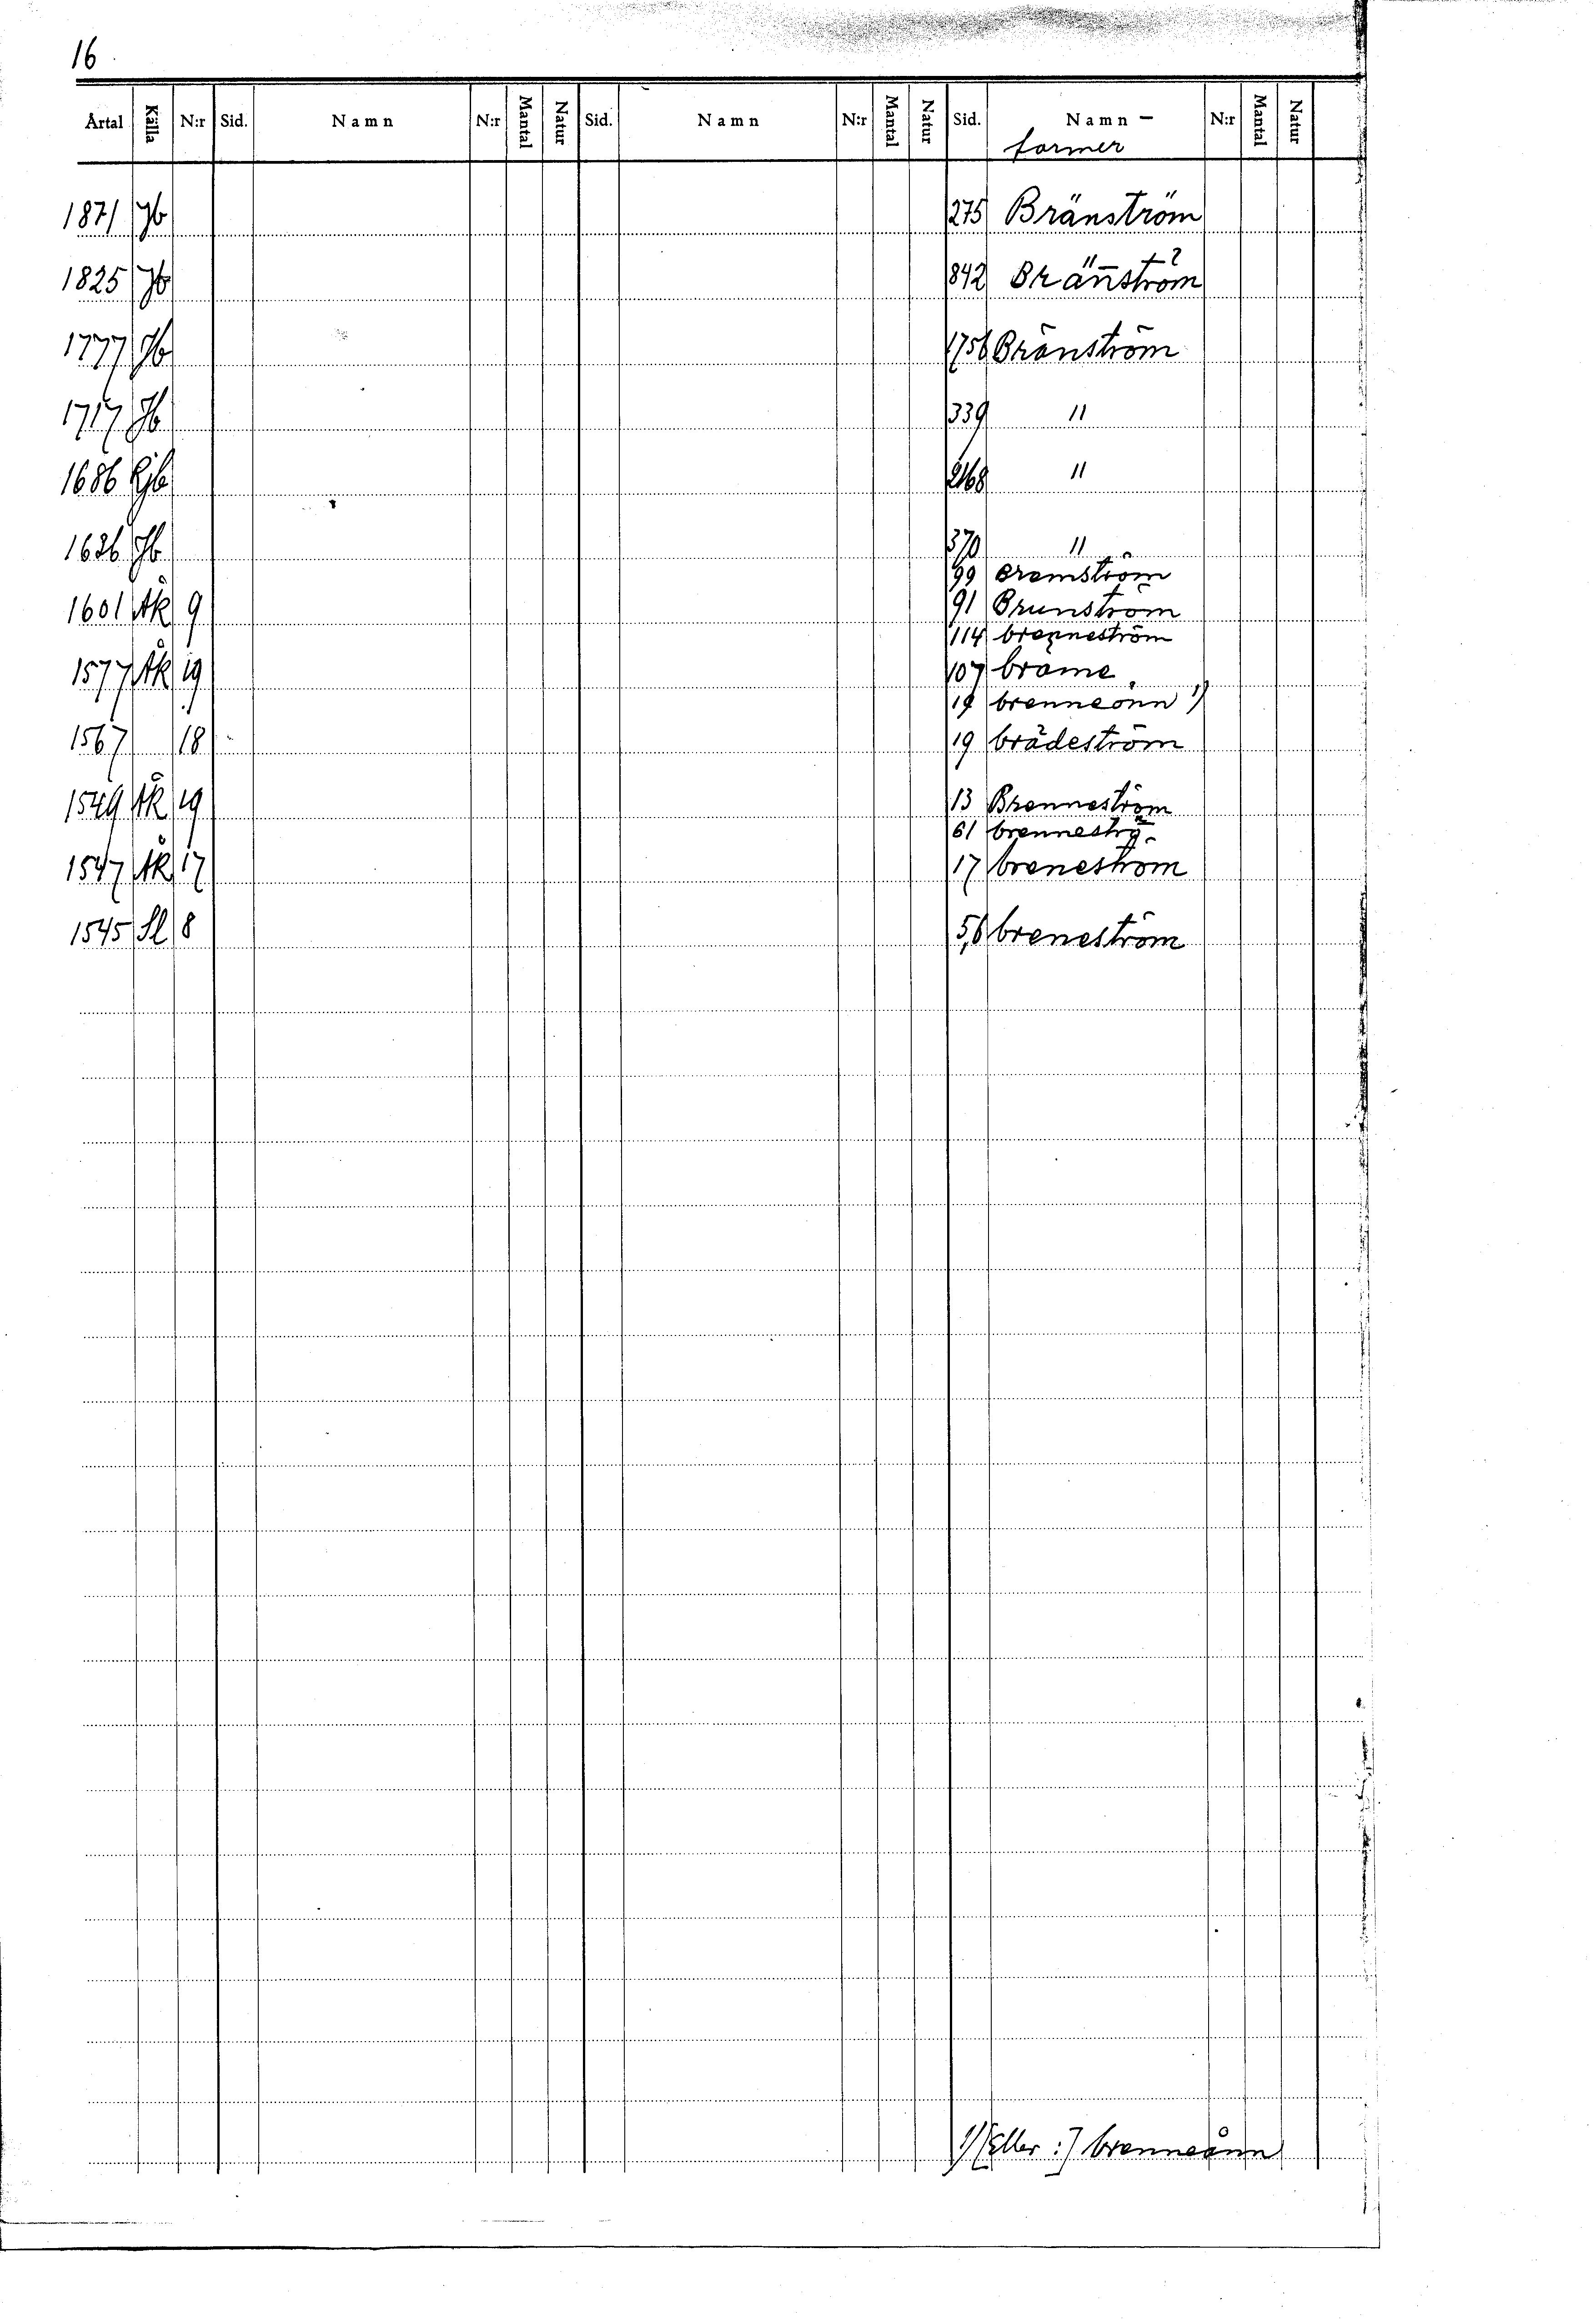 16
Årtal Källa N:r Sid. Namn N:r Mantal Natur Sid. Namn N:r Mantal Natur Sid. Namn – N:r Mantal Natur
former
1871 Jb 275 Bränström
1825 Jb 842 Brän̄ström ?
1777 Jb 1756 Bränström
1717 Jb 339 "
1686 Rjb 2168 "
1626 Jb 370 "
99 Bremström
1601 Åk 9 91 Brunström
114 brenneström
1577 Åk 19 107 bräme
19 brenneönn 1)
1567 18 19 brådeström
1549 Åk 19 13 Brenneström
61
1547 Åk 17 17 breneström
1545 Sl 8 5,6 breneström
1) [Eller :] brenneånn